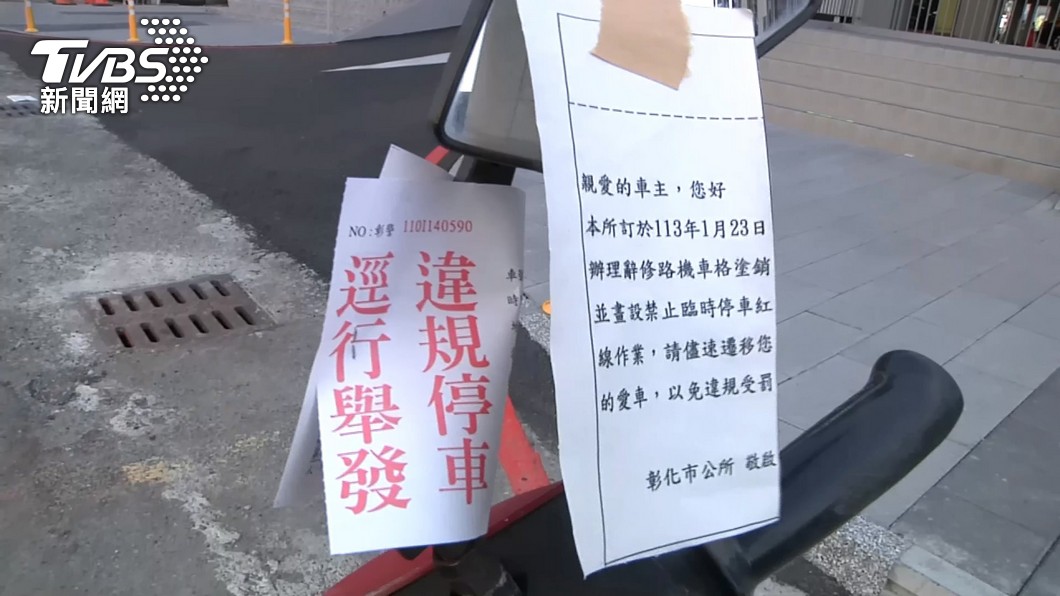 TVBS
新聞網
NO:彰警 1101140590
違規停車
逕行舉發
車
時
親愛的車主，您好
本所訂於113年1月23日
辦理辭修路機車格塗銷
並畫設禁止臨時停車紅
線作業，請儘速遷移您
的愛車，以免違規受罰
彰化市公所 敬啟